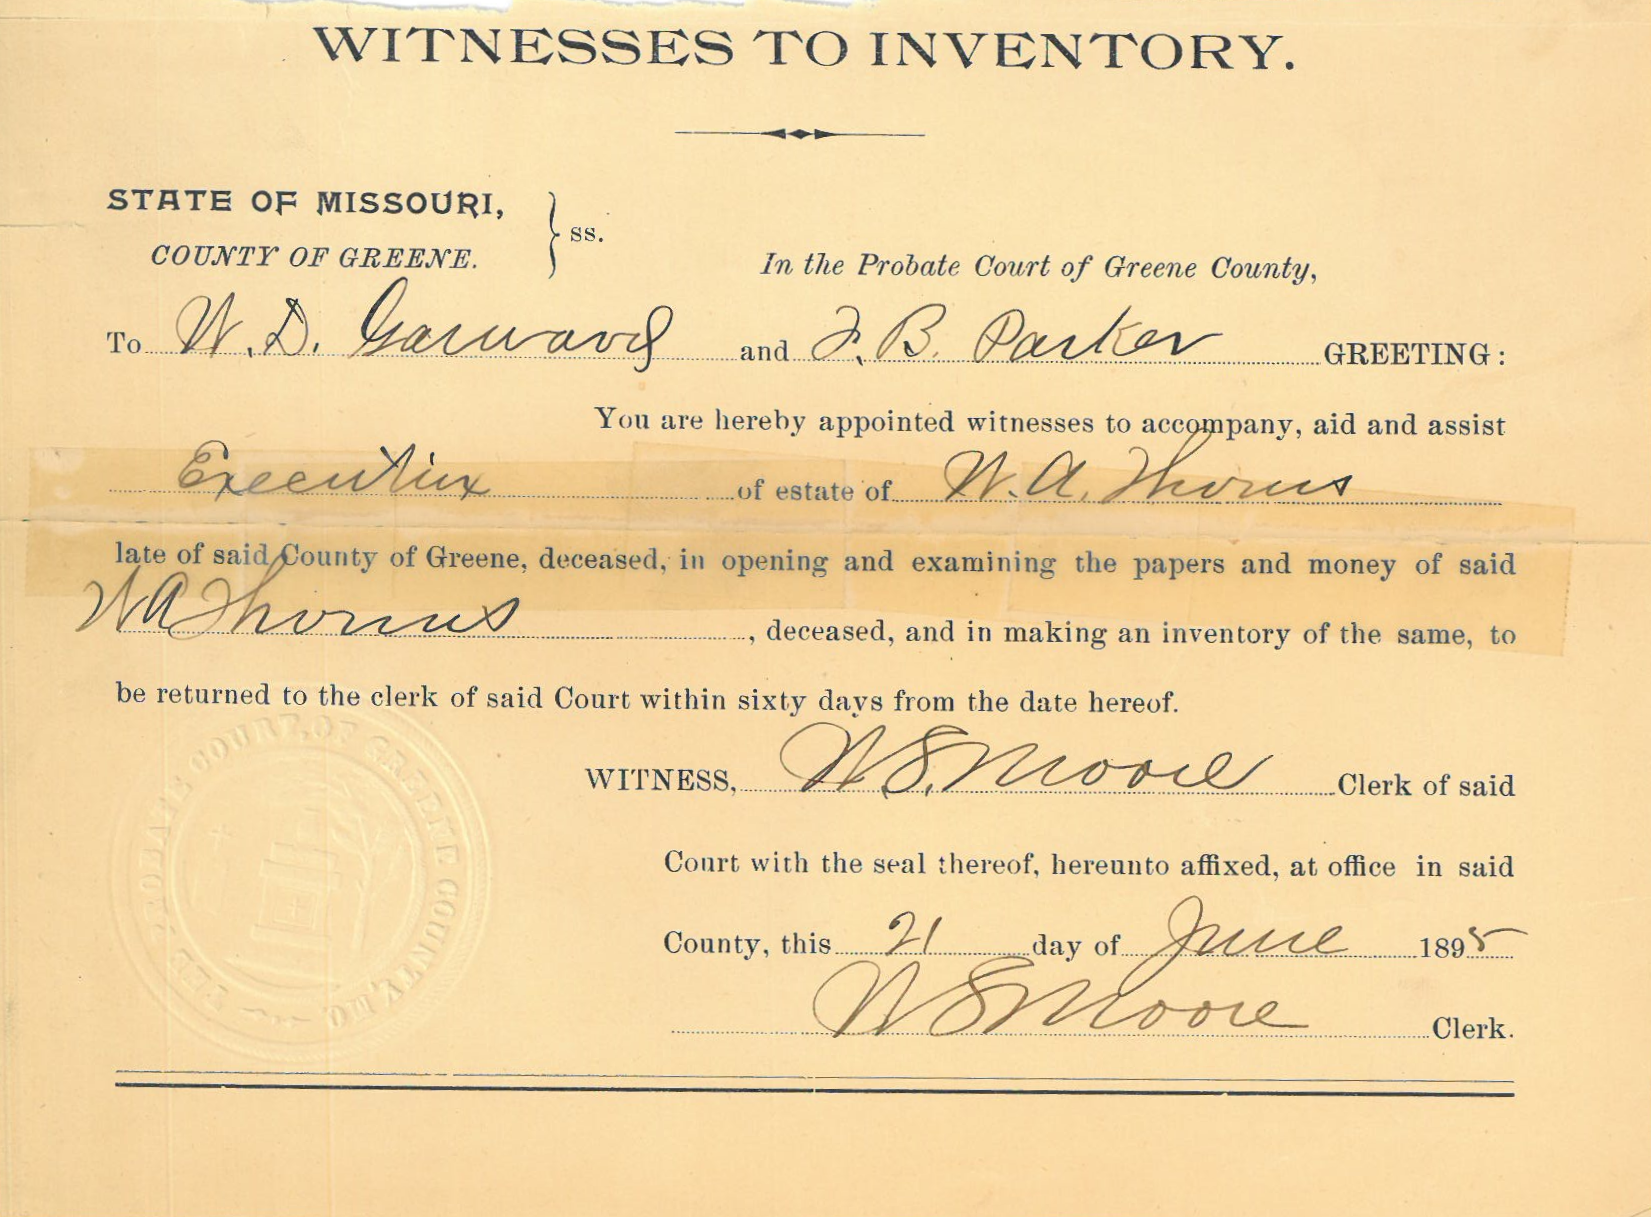 WITNESSES TO INVENTORY.
STATE OF MISSOURI,
COUNTY OF GREENE.
ss.
In the Probate Court of Greene County,
To W. D. Garwood and F. B. Parker GREETING:
You are hereby appointed witnesses to accompany, aid and assist
Executrix of estate of W. A. 
late of said County of Greene, deceased, in opening and examining the papers and money of said
W A , deceased, and in making an inventory of the same, to
be returned to the clerk of said Court within sixty days from the date hereof.
WITNESS, W. S. Moore Clerk of said
Court with the seal thereof, hereunto affixed, at office in said
County, this 21 day of June 1895
W S Moore Clerk.
THE PROBATE COURT OF GREENE COUNTY, MO.